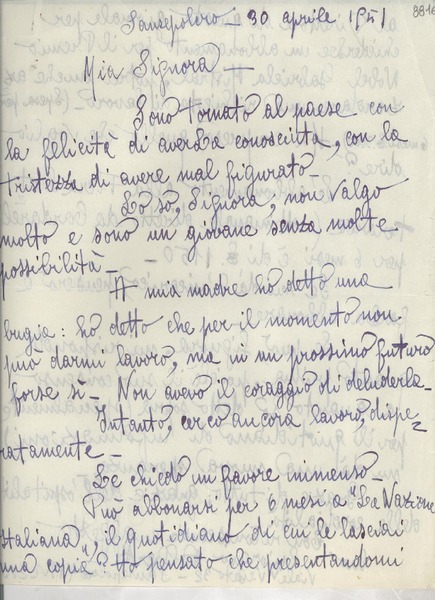 Sansepolcro - 30 aprile 1951
8816
Mia Signora -
Sono tornato al paese con
la felicità di averLa conosciuta, con la
tristezza di avere mal figurato -
Lo so, Signora, non valgo
molto e sono un giovane senza molte
possibilità -
A mia madre ho detto una
bugia: ho detto che per il momento non
può darmi lavoro, ma in un prossimo futuro
forse sì - Non avevo il coraggio di deluderla -
Intanto, cerco ancora lavoro, dispe=
ratamente -
Le chiedo un favore immenso -
Può abbonarsi per 6 mesi a "La Nazione
Italiana", il quotidiano di cui le lasciai
una copia? Ho pensato che presentandomi